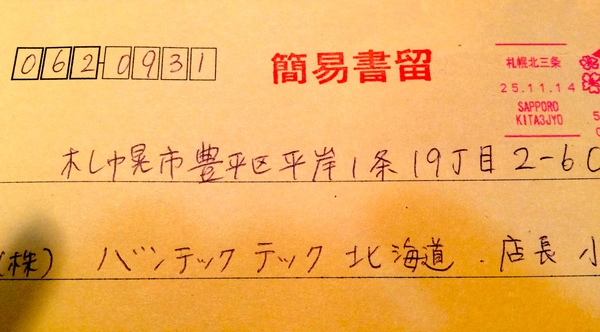 062-0931
簡易書留
札幌北三条
25.11.14
SAPPORO
KITA3JYO
札幌市豊平区平岸1条19丁目2-60
(株) バンテックテック北海道 . 店長 小